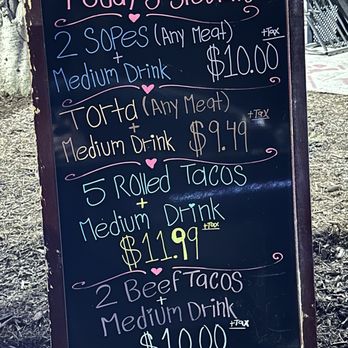 Today's Specials
2 Sopes (Any Meat)
+
Medium Drink $10.00 +Tax
Torta (Any Meat)
+
Medium Drink $9.49 +Tax
5 Rolled Tacos
+
Medium Drink
$11.99 +Tax
2 Beef Tacos
+
Medium Drink
$10.00 +Tax